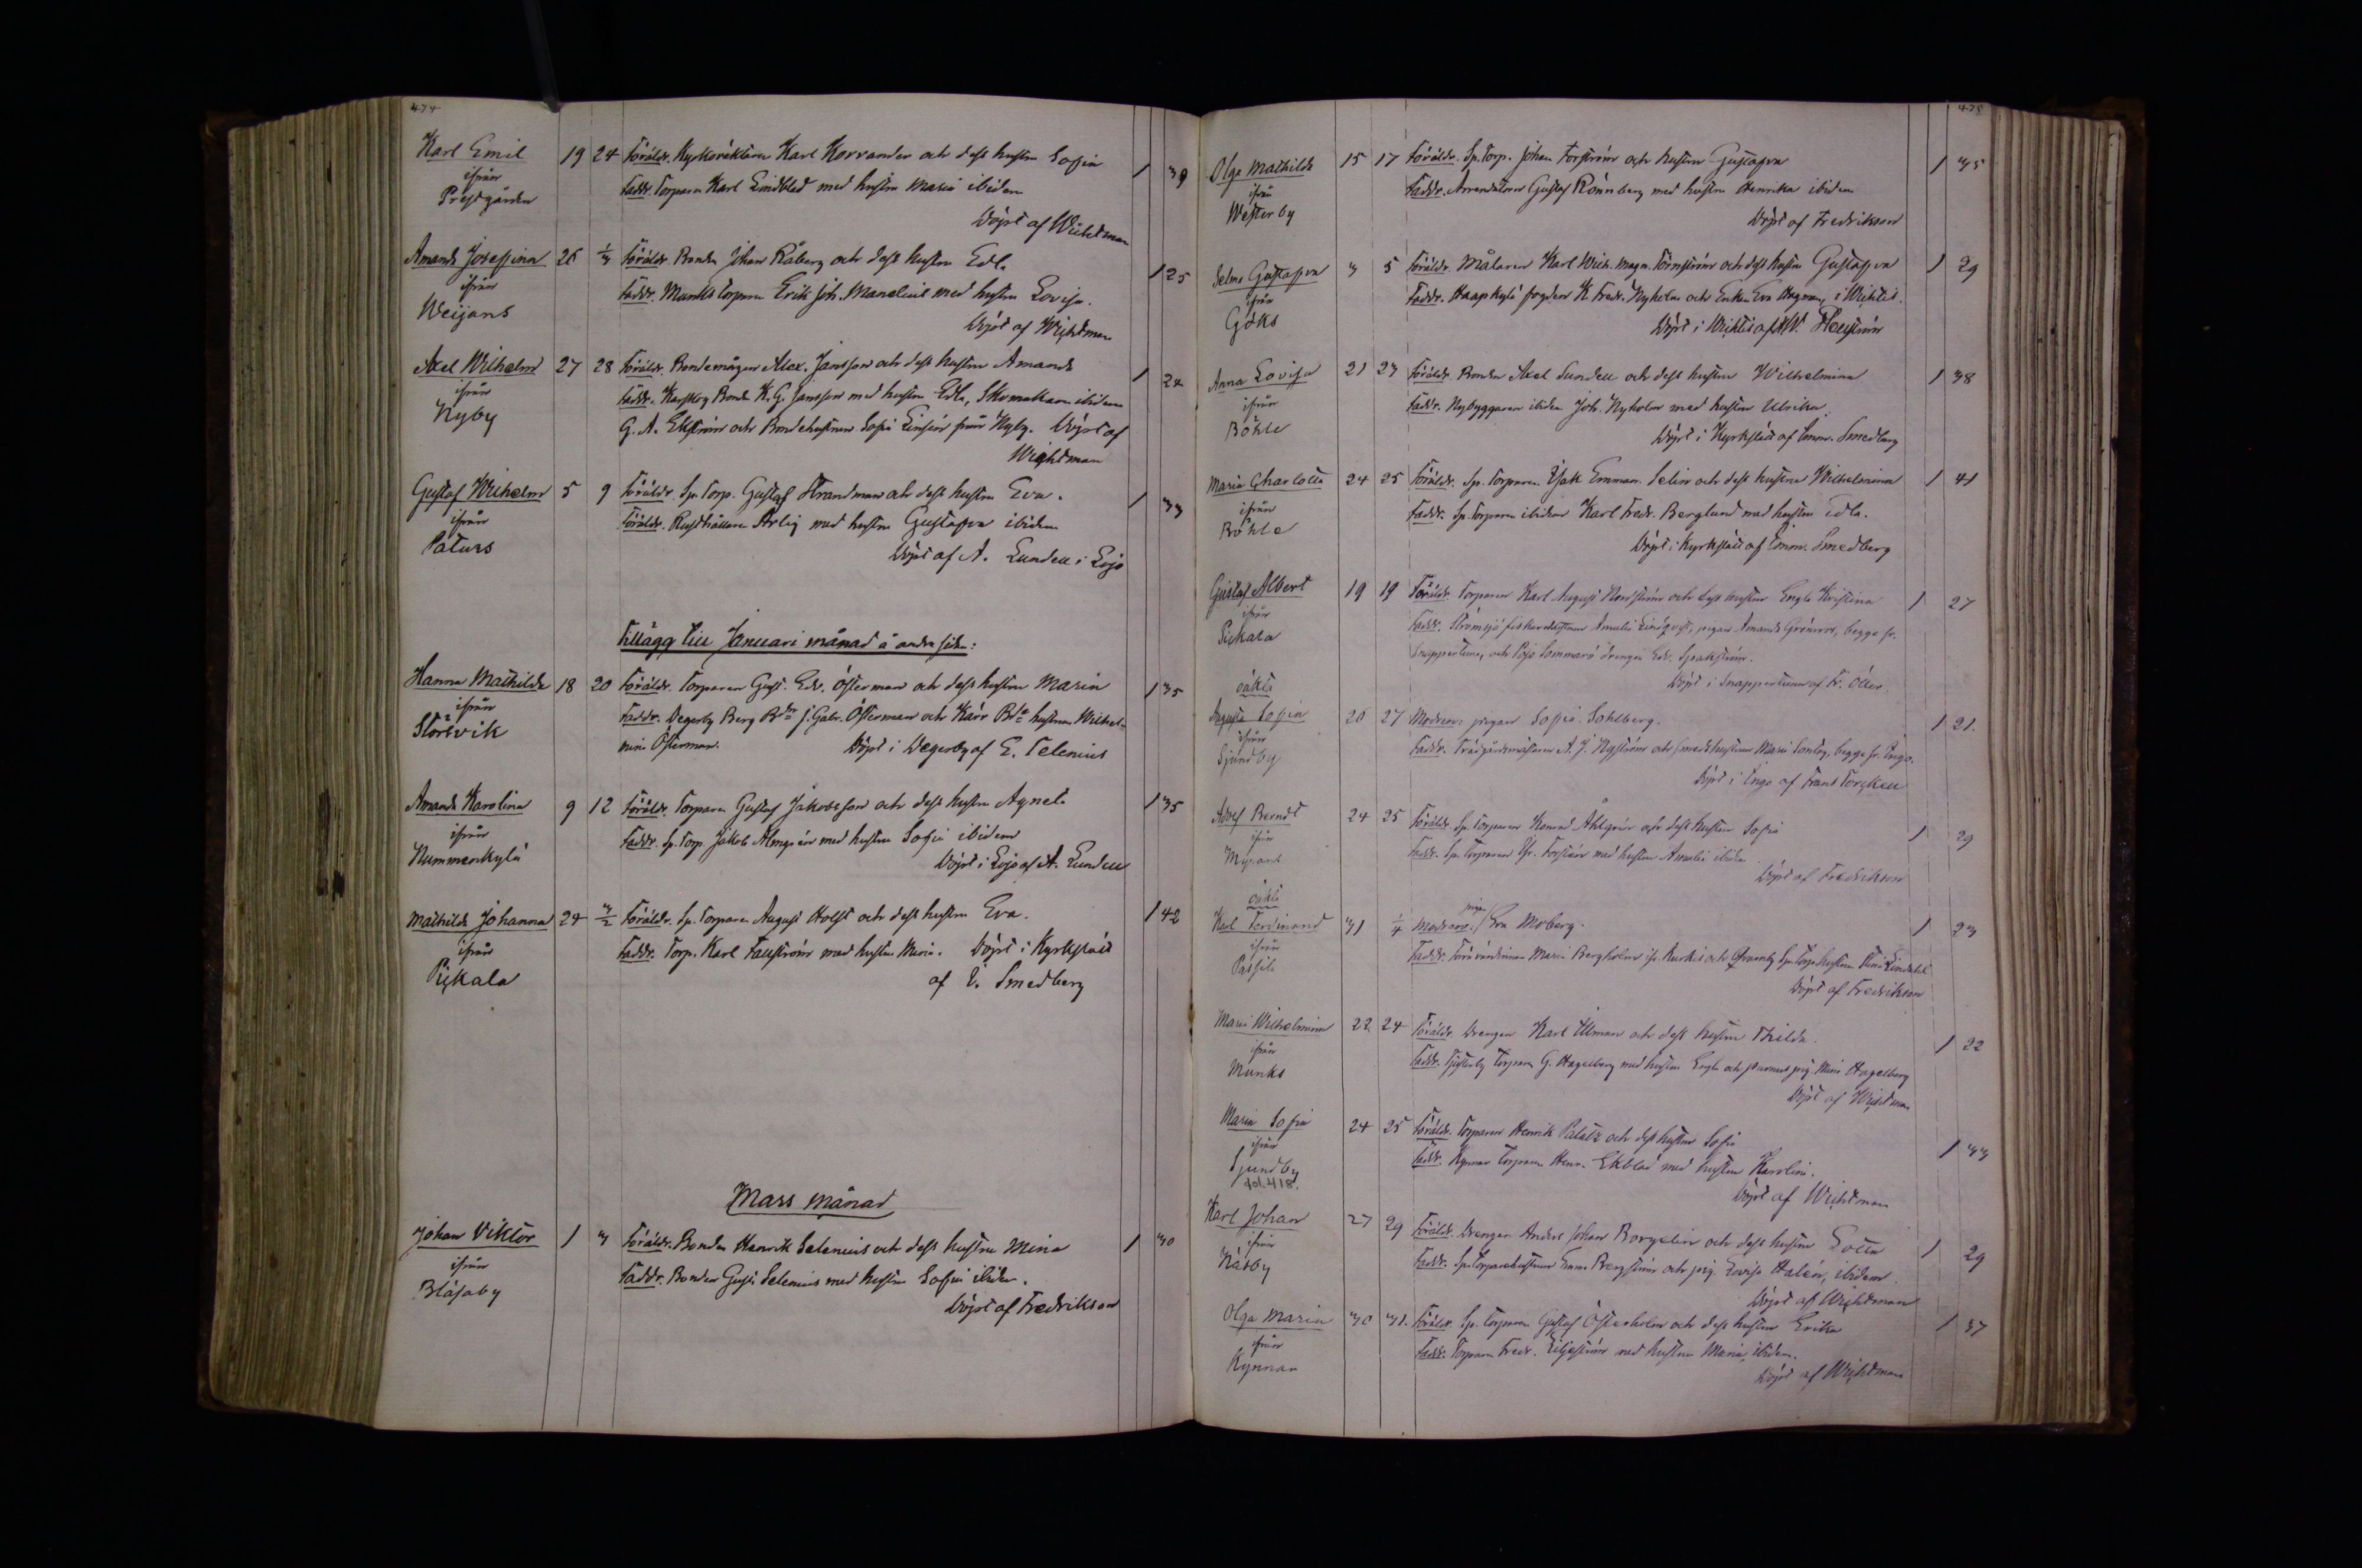 474
Karl Emil 19 24 Föräldr. Kyrkoväktaren Karl Korrander och dess hustru Sofia / 39
ifrån Faddr. Torparen Karl Lindblad med hustru Maria ibidem
Prestgården Döpt af Wichtman
Amanda Josefina 26 1/3 Föräldr. Bonden Johan Råberg och dess hustru Edla / 25
ifrån Faddr. Munks Torparen Erik Joh. Manelius med hustru Lovisa.
Weijans Döpt af Wichtman
Axel Wilhelm 27 28 Föräldr. Bondemågen Alex. Jansson och dess hustru Amanda / 24
ifrån Faddr. Karskog Bonde K. G. Jansson med hustru Edla, Skomakaren ibidem
Nyby G. A. Ekström och Bondehustrun Sofia Linfors från Nyby. Döpt af
Wichtman
Gustaf Wilhelm 5 9 Föräldr. Sp. Torp. Gustaf Strandman och dess hustru Eva. / 33
ifrån Föräldr. Rusthållaren Arlig med hustru Gustafva ibidem
Paturs Döpt af A. Lundell i Lojo
Tillägg till Januari månad å andra sidan:
Hanna Mathilda 18 20 Föräldr. Torparen Gust. Edv. Österman och dess hustru Maria / 35
ifrån Faddr. Degerby Berg Bdn J. Gabr. Österman och Kärr Bde hustrun Wilhel-
Störsvik mina Österman. Döpt i Degerby af E. Telenius
Amanda Karolina 9 12 Föräldr. Torparen Gustaf Jakobsson och dess hustru Agneta / 35
ifrån Faddr. Sp. Torp. Jakob Almgrén med hustru Sofia ibidem
Nummenkylä Döpt i Lojo af A. Lundell
Mathilda Johanna 24 3/2 Föräldr. Sp. Torparen August Holst och dess hustru Eva. / 42
ifrån Faddr. Torp. Karl Fallström med hustru Maria. Döpt i Kyrkslätt
Pickala af E. Smedberg
Mars månad
Johan Viktor 1 3 Föräldr. Bonden Henrik Selenius och dess hustru Mina / 30
ifrån Faddr. Bonden Gust. Selenius med hustru Sofia ibidem.
Blåsaby Döpt af Fredrikson
475
Olga Mathilda 15 17 Föräldr. Sp. Torp. Johan Forström och hustru Gustafva / 35
ifrån Faddr. Arrendatorn Gustaf Rönnberg med hustru Henrika ibidem
Westerby Döpt af Fredrikson
Selma Gustafva 3 5 Föräldr. Målaren Karl Wilh. Magn. Törnström och dess hustru Gustafva / 29
ifrån Faddr. Haapkylä fogden K. Fredr. Nyholm och Enkan Eva Hagman, i Wichtis.
Göks Döpt i Wichtis af
Anna Lovisa 21 23 Föräldr. Bonden Axel Sundell och dess hustru Wilhelmina / 38
ifrån Faddr. Nybyggaren ibidem Joh. Nyholm med hustru Ulrika.
Böhle Döpt i Kyrkslätt af Emm. Smedberg
Maria Charlotta 24 25 Föräldr. Sp. Torparen Isak Emman. Selin och dess hustru Wilhelmina / 41
ifrån Faddr. Sp. Torparen ibidem Karl Fredr. Berglund med hustru Edla.
Böhle Döpt i Kyrkslätt af Emm. Smedberg
Gustaf Albert 19 19 Föräldr. Torparen Karl August Nordström och dess hustru Engla Kristina / 27
ifrån Faddr. Strömsjö fiskarehustrun Amalia Lindqvist, pigan Amanda Grönroos, begge fr.
Pickala Snappertuna, och Pojo Sommarö drengen Edv. Spakström.
Döpt i Snappertuna af Fr. Öller.
oäkta
Augusta Sofia 26 27 Modren: pigan Sofia Sohlberg. / 21.
ifrån Faddr. Trädgårdsmästaren A. J. Nyström och smedhustrun Maria , begge fr. Ingo.
Sjundby Döpt i Ingo af Frans Forsell
Adolf Berndt 24 25 Föräldr. Sp. Torparen Konrad Åhlgren och dess hustru Sofia / 29
ifrån Faddr. Sp. Torparen Forstén med hustru Amalia ibidem
Myrans Döpt af Fredrikson
oäkta
Karl Ferdinand 31 1/4 Modren: pigan Eva Moberg. / 23
ifrån Faddr. Maria Bergholm och Sp. Torp. hustrun Lindstedt
Passila Döpt af Fredrikson
Maria Wilhelmina 22 24 Föräldr. Drengen Karl Ullman och dess hustru Thilda. / 22
ifrån Faddr. Torparen G. Hagelberg med hustru Engla och pig. Mina Hagelberg
Munks Döpt af Wichtman
Maria Sofia 24 25 Föräldr. Torparen Henrik Palats och dess hustru Sofia / 33
ifrån Faddr. Kynnar Torparen Henr. Ekblad med hustru Karolina.
Sjundby Döpt af Wichtman
fol. 418.
Karl Johan 27 29 Föräldr. Drengen Anders Johan Borgelin och dess hustru Lotta / 29
ifrån Faddr. Sp. Torparehustrun Emma Bergström och pig. Lovisa Halén, ibidem.
Näsby Döpt af Wichtman
Olga Maria 30 31. Föräldr. Sp. Torparen Gustaf Österholm och dess hustru Erika / 37
ifrån Faddr. Torparen Fredr. Liljeström med hustru Maria, ibidem.
Kynnar Döpt af Wichtman